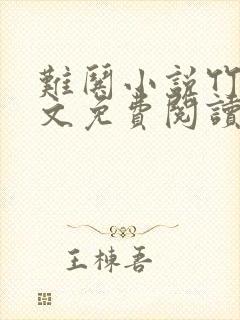 難關小說竹
文免費閱讀
王棟吾